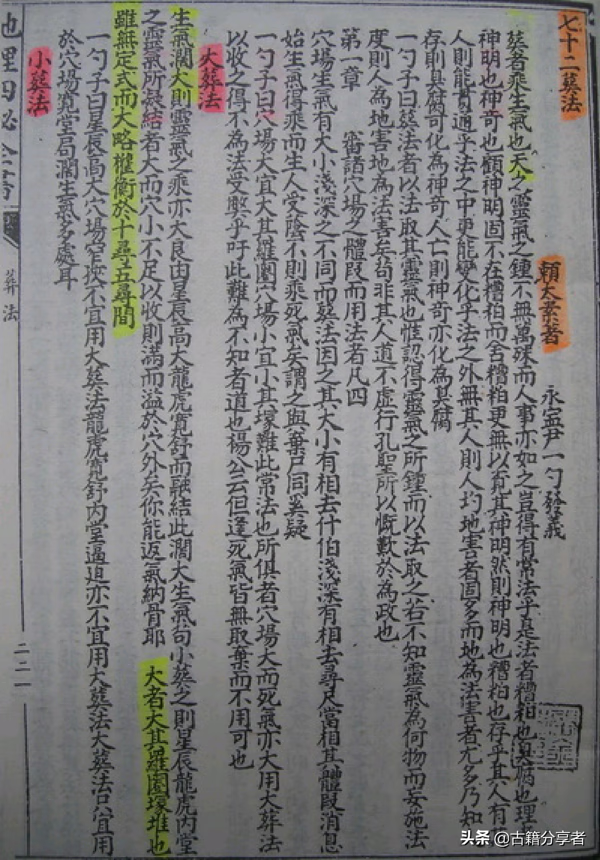 七十二葬法
賴太素著　永寍尹一勺發義
葬者乘生氣也天之靈氣之鍾不無萬殊而人事亦如之豈得有常法乎是法者糟粕也臭腐也理
神明也神奇也顧神明固不在糟粕而舍糟粕更無以見其神明然則神明也糟粕也存乎其人有
人則能貫通乎法之中更能變化乎法之外無其人則人圴地害者固多而地為法害者尤多乃知
存則臭腐可化為神奇人亡則神奇亦化為臭腐
一勺子曰葬法者以法取其靈氣也惟認得靈氣之所鍾而以法取之若不知靈氣為何物而妄施法
度則人為地害地為法害矣苟非其人道不虛行孔聖所以慨歎於為政也
第一章　審諸穴場之體段而用法者凡四
穴場生氣有大小淺深之不同而葬法因之其大小有相去什伯淺深有相去尋尺當相其體段消息
始生氣得乘而生人受陰不則乘死氣矣謂之與棄尸同奚疑
一勺子曰穴場大宜大其羅圍穴場小宜小其塚難此常法也所俱者穴場大而死氣亦大用大葬法
以收之得不為法受愍乎吁此難為不知者道也楊公云但逢死氣皆無取棄而不用可也
大葬法
生氣濶大則靈氣之乘亦大良由星辰高大龍虎寬舒而融結此濶大生氣句小葬之則星辰龍虎內堂
之靈氣所凝結者大而穴小不足以收則滿而溢於穴外矣你能返氣納骨耶　大者大其羅圍塚堆也
雖無定式而大略權衡於十尋五尋間
一勺子曰星辰高大穴場窄狹不宜用大葬法龍虎寬舒內堂逼迫亦不宜用大葬法大葬法只宜用
於穴場寬堂局濶生氣多處耳
小葬法
地理囚秘全書
葬法
二二一
头条 @古籍分享者